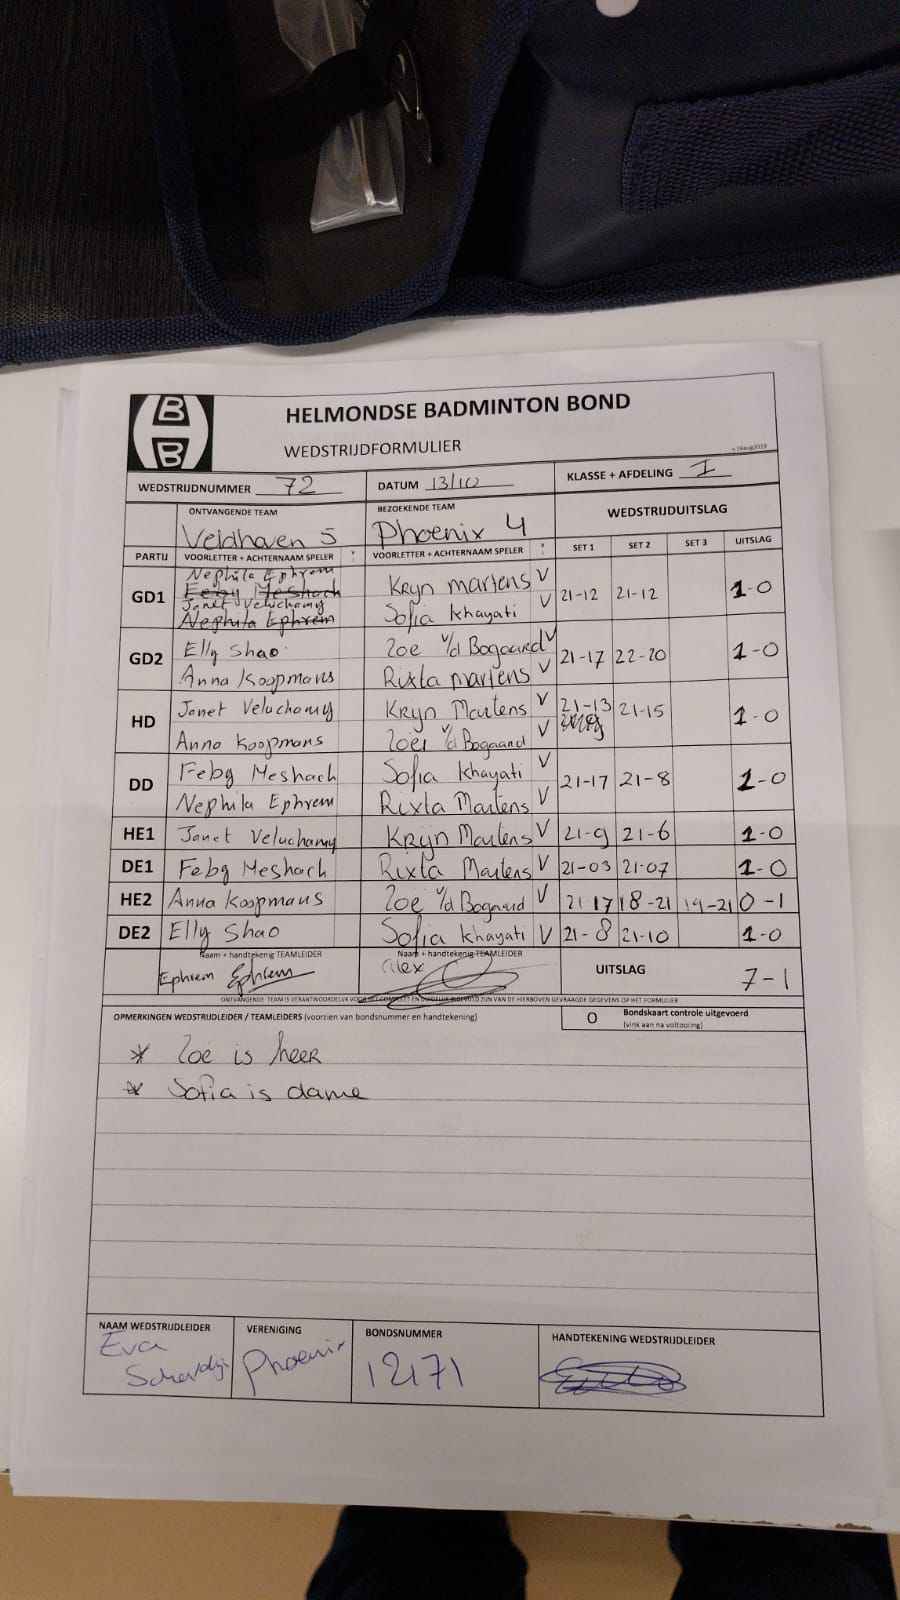 HELMONDSE BADMINTON BOND
WEDSTRIJDFORMULIER
WEDSTRIJDNUMMER 72 DATUM 13/10 KLASSE + AFDELING I
ONTVANGENDE TEAM BEZOEKENDE TEAM WEDSTRIJDUITSLAG
Veldhaven 5 Phoenix 4
PARTIJ VOORLETTER + ACHTERNAAM SPELER VOORLETTER + ACHTERNAAM SPELER SET 1 SET 2 SET 3 UITSLAG
Nephila Ephrem
GD1 Feby Meshach Kryn Martens V 21-12 21-12 1-0
Janet Veluchamy Sofia Khayati V
Nephila Ephrem
GD2 Elly Shao Zoe v/d Bogaard V 21-17 22-20 1-0
Anna Koopmans Rixta Martens V
HD Janet Veluchamy Kryn Martens V 21-13 21-15 1-0
Anna Koopmans Zoei v/d Bogaard V
DD Feby Meshach Sofia Khayati V 21-17 21-8 1-0
Nephila Ephrem Rixta Martens V
HE1 Janet Veluchamy Kryn Martens V 21-9 21-6 1-0
DE1 Feby Meshach Rixta Martens V 21-03 21-07 1-0
HE2 Anna Koopmans Zoe v/d Bogaard V 21 17 18-21 19-21 0-1
DE2 Elly Shao Sofia Khayati V 21-8 21-10 1-0
Naam + handtekenig TEAMLEIDER Naam + handtekenig TEAMLEIDER
Ephrem Ephrem Alex UITSLAG 7-1
OPMERKINGEN WEDSTRIJDLEIDER / TEAMLEIDERS (voorzien van bondsnummer en handtekening) O Bondskaart controle uitgevoerd
(vink aan na voltooing)
* Zoe is heer
* Sofia is dame
NAAM WEDSTRIJDLEIDER VERENIGING BONDSNUMMER HANDTEKENING WEDSTRIJDLEIDER
Eva Phoenix 12171